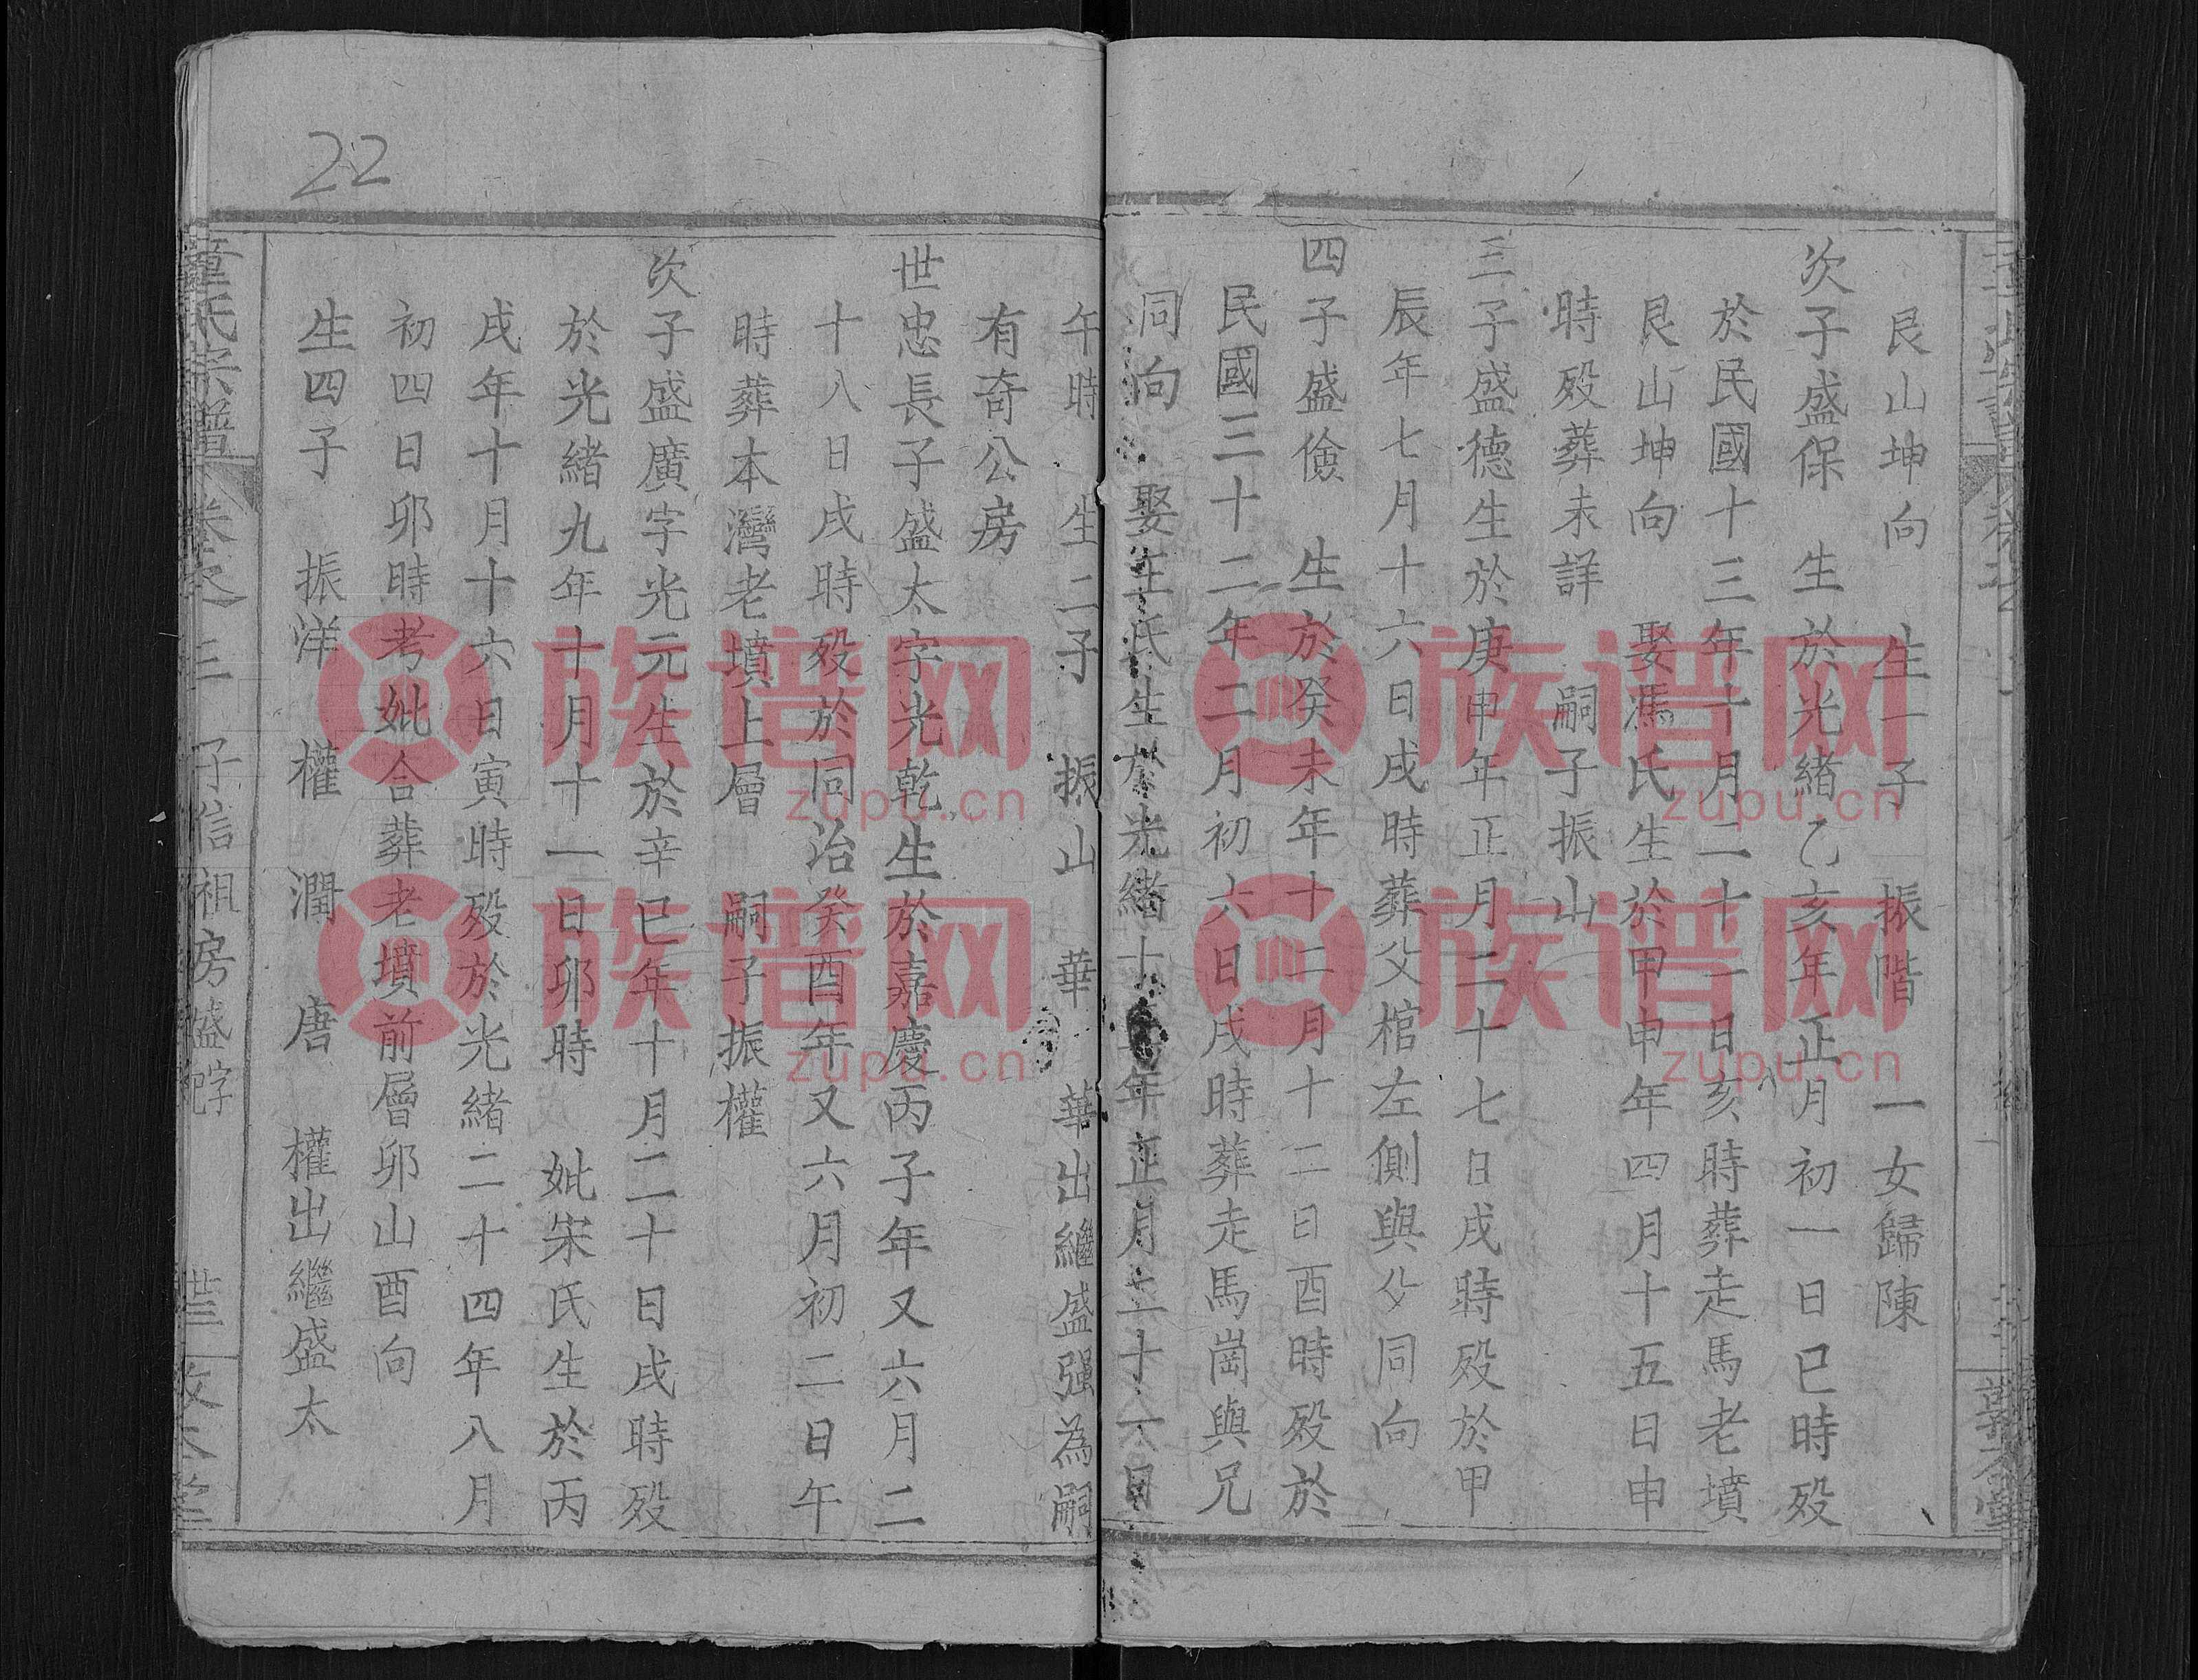 艮山坤向　生一子　振階　一女歸陳
次子盛保　生於光緒乙亥年正月初一日巳時殁
於民國十三年十月二十一日亥時葬走馬老墳
艮山坤向　娶馮氏生於甲申年四月十五日申
時殁葬未詳　嗣子振山
三子盛德生於庚申年正月二十七日戌時殁於甲
辰年七月十六日戌時葬父棺左側與父同向
四子盛儉　生於癸未年十二月十二日酉時殁於
民國三十二年二月初六日戌時葬走馬崗與兄
同向　娶王氏生於光緒十年正月二十一日
午時　生二子　振山　華　華出繼盛强為嗣
有奇公房
世忠長子盛太字光乾生於嘉慶丙子年又六月二
十八日戌時殁於同治癸酉年又六月初二日午
時葬本灣老墳上層　嗣子振權
次子盛廣字光元生於辛巳年十月二十日戌時殁
於光緒九年十月十一日卯時　妣宋氏生於丙
戌年十月十六日寅時殁於光緒二十四年八月
初四日卯時考妣合葬老墳前層卯山酉向
生四子　振洋　權　潤　唐　權出繼盛太
童氏宗譜　卷之三　子信祖房盛字　世三
22
族谱网
zupu.cn
族谱网
zupu.cn
族谱网
zupu.cn
族谱网
zupu.cn